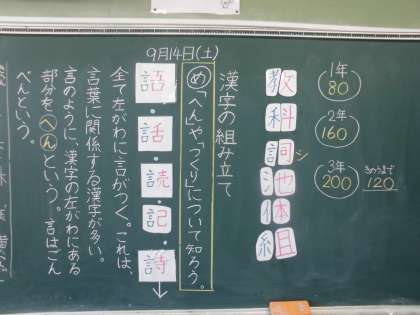 9月14日(土)
1年
80
2年
160
3年
200
きのうまで
120
教
科
詞シ
池
体
組
漢字の組み立て
め「へん」や「つくり」について知ろう。
語・話・読・記・詩
全て左がわに言がつく。これは、
言葉に関係する漢字が多い。
言のように、漢字の左がわにある
部分をへんという。言はごん
べんという。